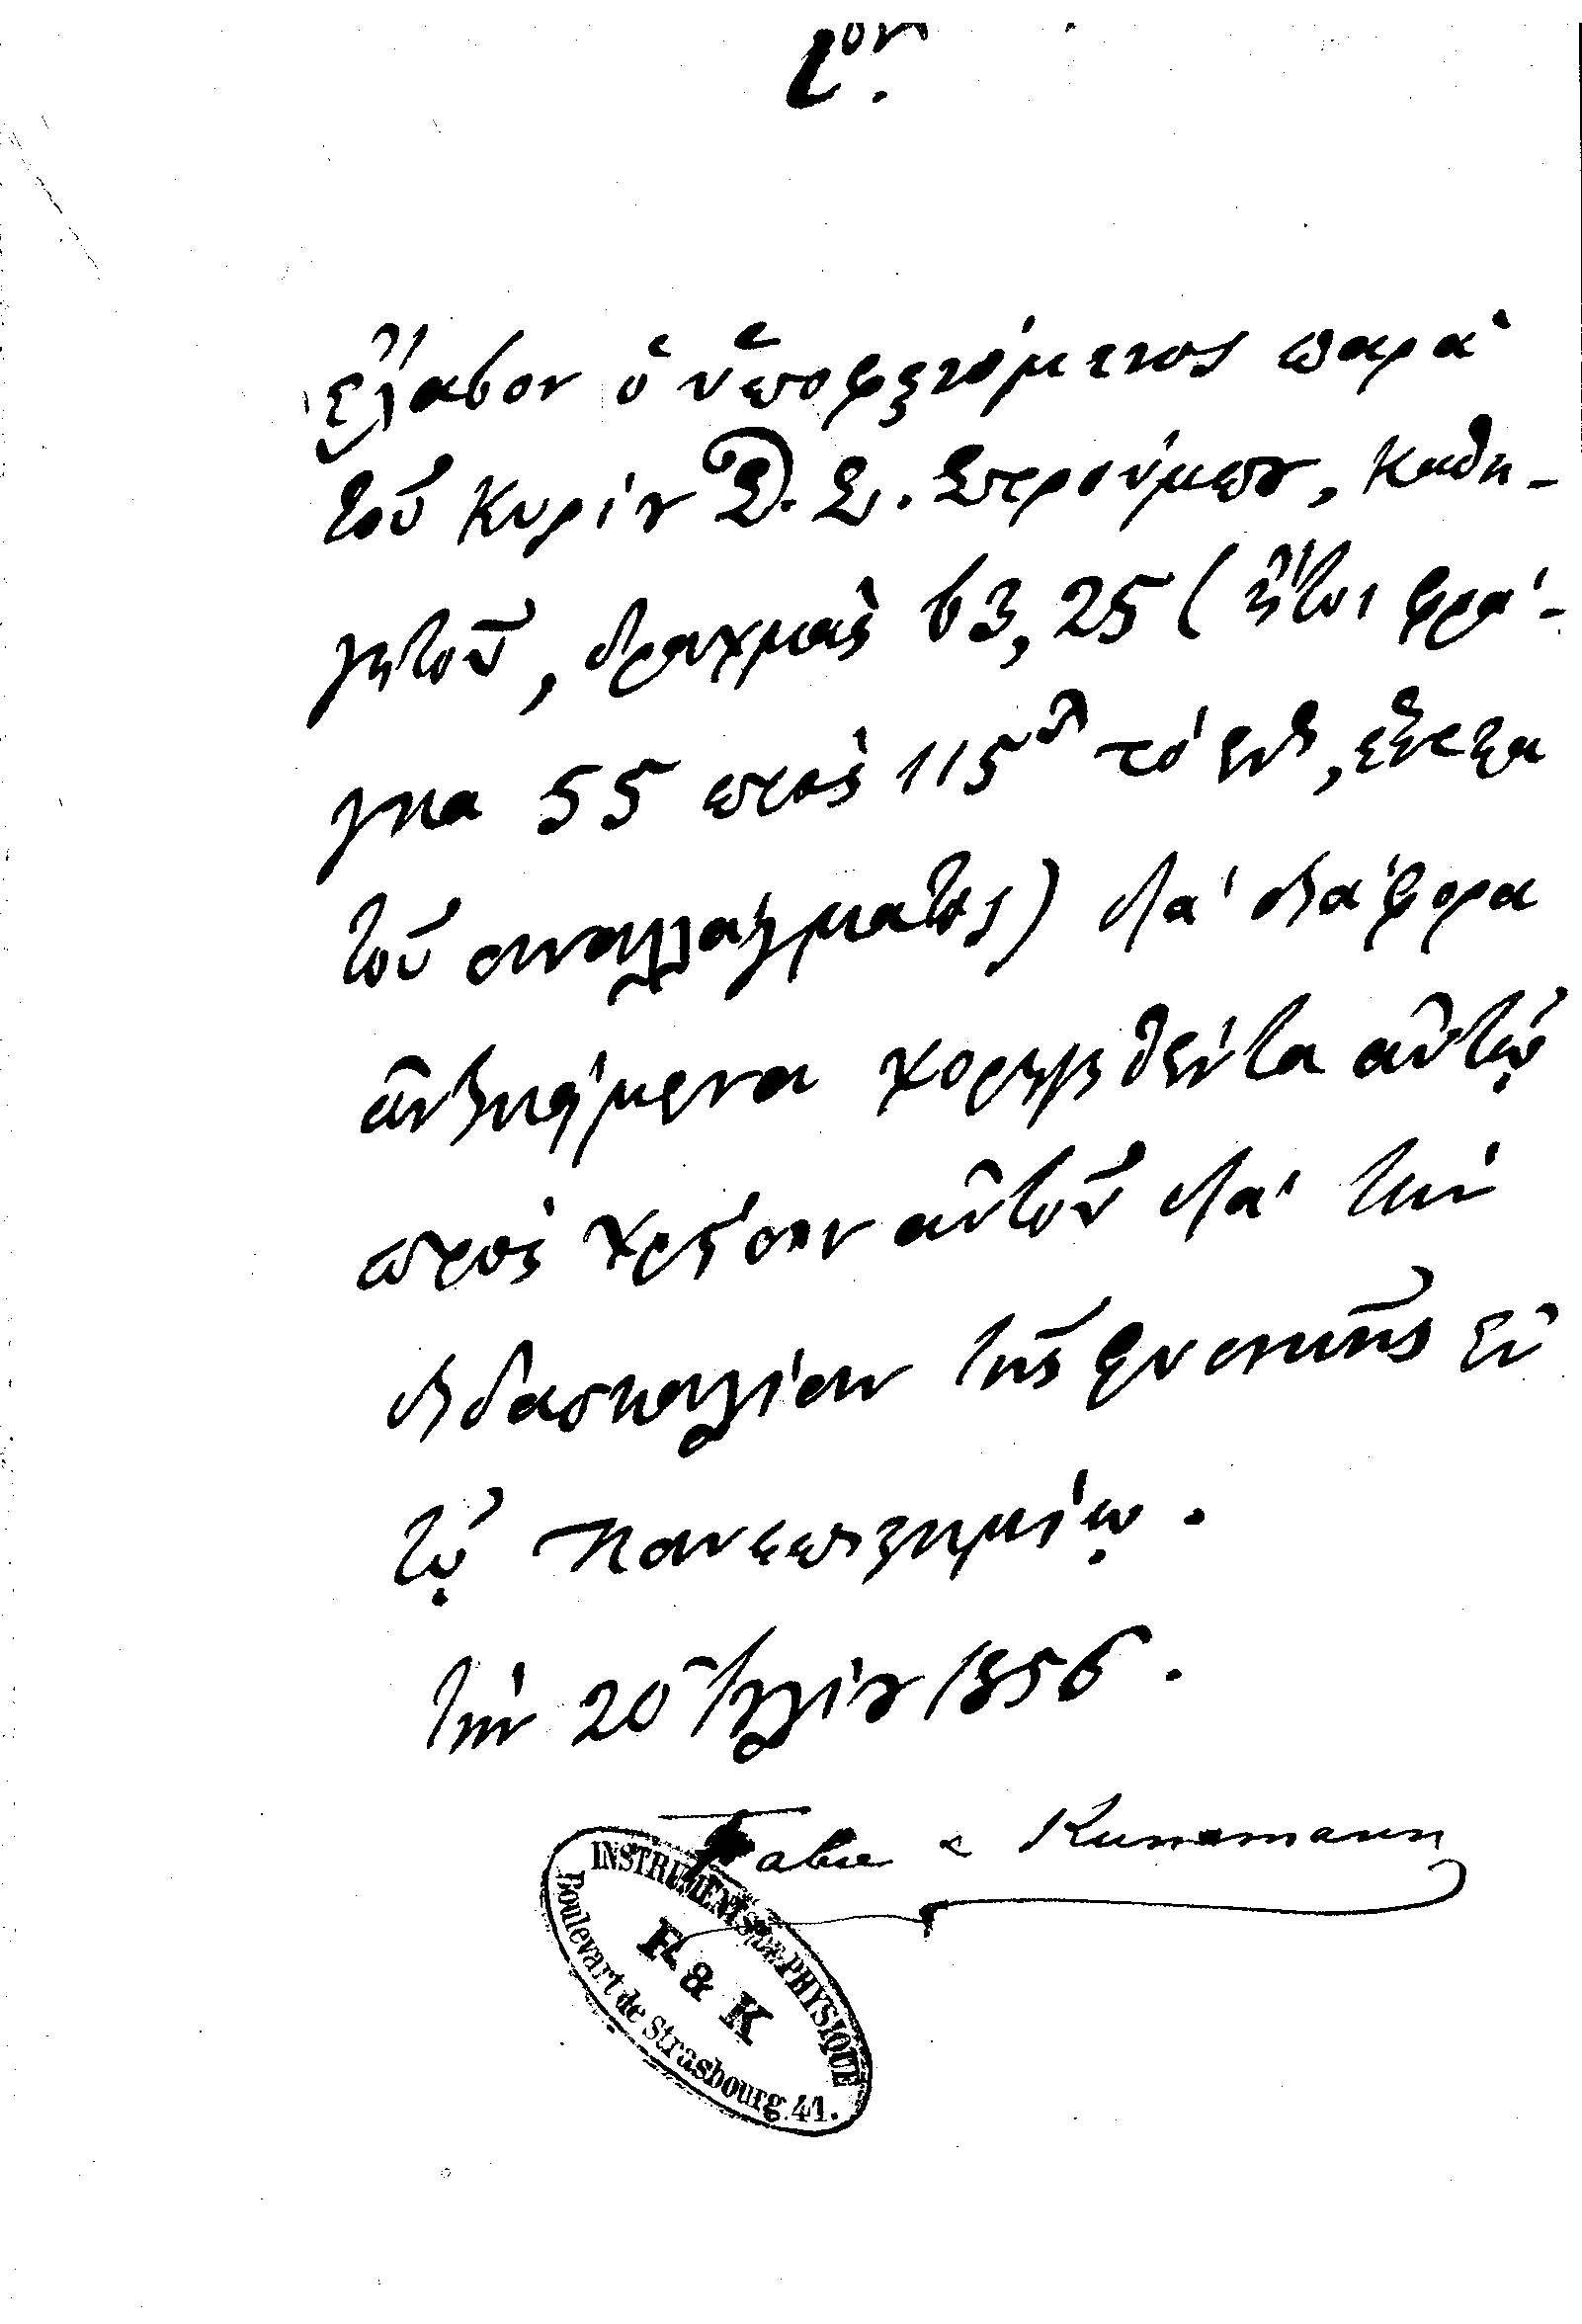 1ον.
Ἔλαβον ὁ ὑποφαινόμενος παρὰ
τοῦ Κυρίου Δ. Σ. Στρούμπου, καθη-
γητοῦ, δραχμὰς 63,25 (ἤτοι φρά-
γκα 55 πρὸς 115 λ τὸ ἕν, ἕνεκα
τοῦ συναλλάγματος) διὰ διάφορα
ἀντικείμενα χορηγηθέντα αὐτῷ
πρὸς χρῆσιν αὐτοῦ διὰ τὴν
διδασκαλίαν τῆς φυσικῆς ἐν
τῷ Πανεπιστημίῳ.
τὴν 20 Ἰουλίου 1856.
Fabre & Kunemann
INSTRUMENTS DE PHYSIQUE
F & K
Boulevart de Strasbourg. 41.